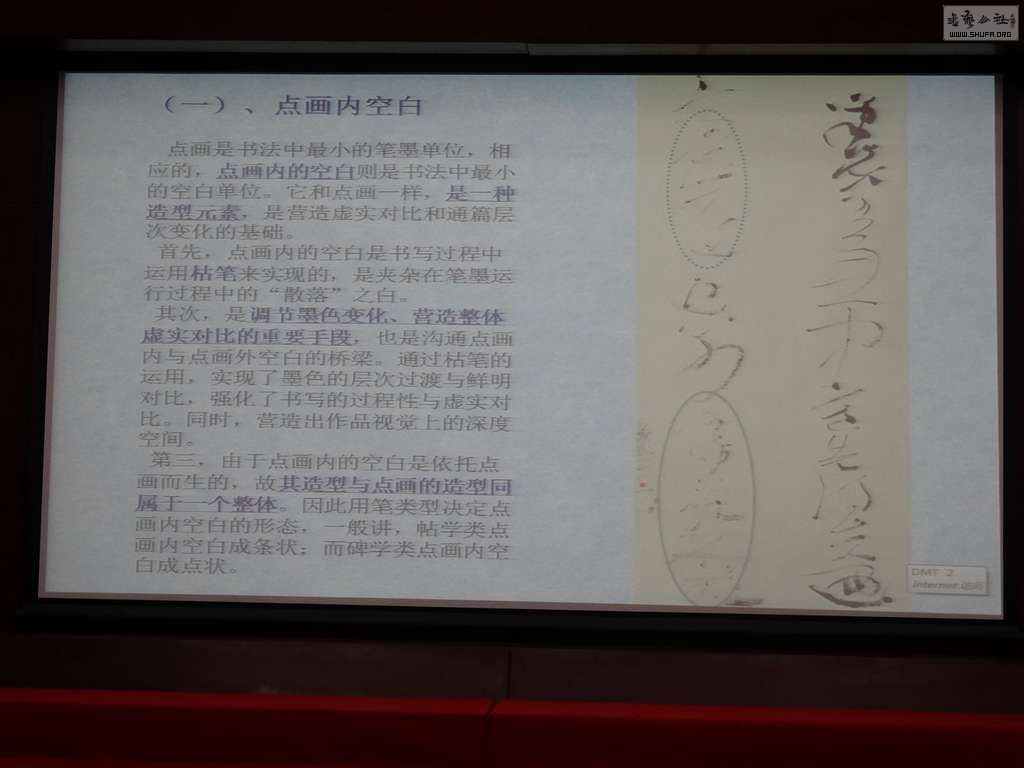 书艺公社
WWW.SHUFA.ORG
（一）、点画内空白
点画是书法中最小的笔墨单位，相
应的，点画内的空白则是书法中最小
的空白单位。它和点画一样，是一种
造型元素，是营造虚实对比和通篇层
次变化的基础。
首先，点画内的空白是书写过程中
运用枯笔来实现的，是夹杂在笔墨运
行过程中的“散落”之白。
其次，是调节墨色变化、营造整体
虚实对比的重要手段，也是沟通点画
内与点画外空白的桥梁。通过枯笔的
运用，实现了墨色的层次过渡与鲜明
对比，强化了书写的过程性与虚实对
比。同时，营造出作品视觉上的深度
空间。
第三，由于点画内的空白是依托点
画而生的，故其造型与点画的造型同
属于一个整体。因此用笔类型决定点
画内空白的形态，一般讲，帖学类点
画内空白成条状；而碑学类点画内空
白成点状。
DMT 2
Internet 访问